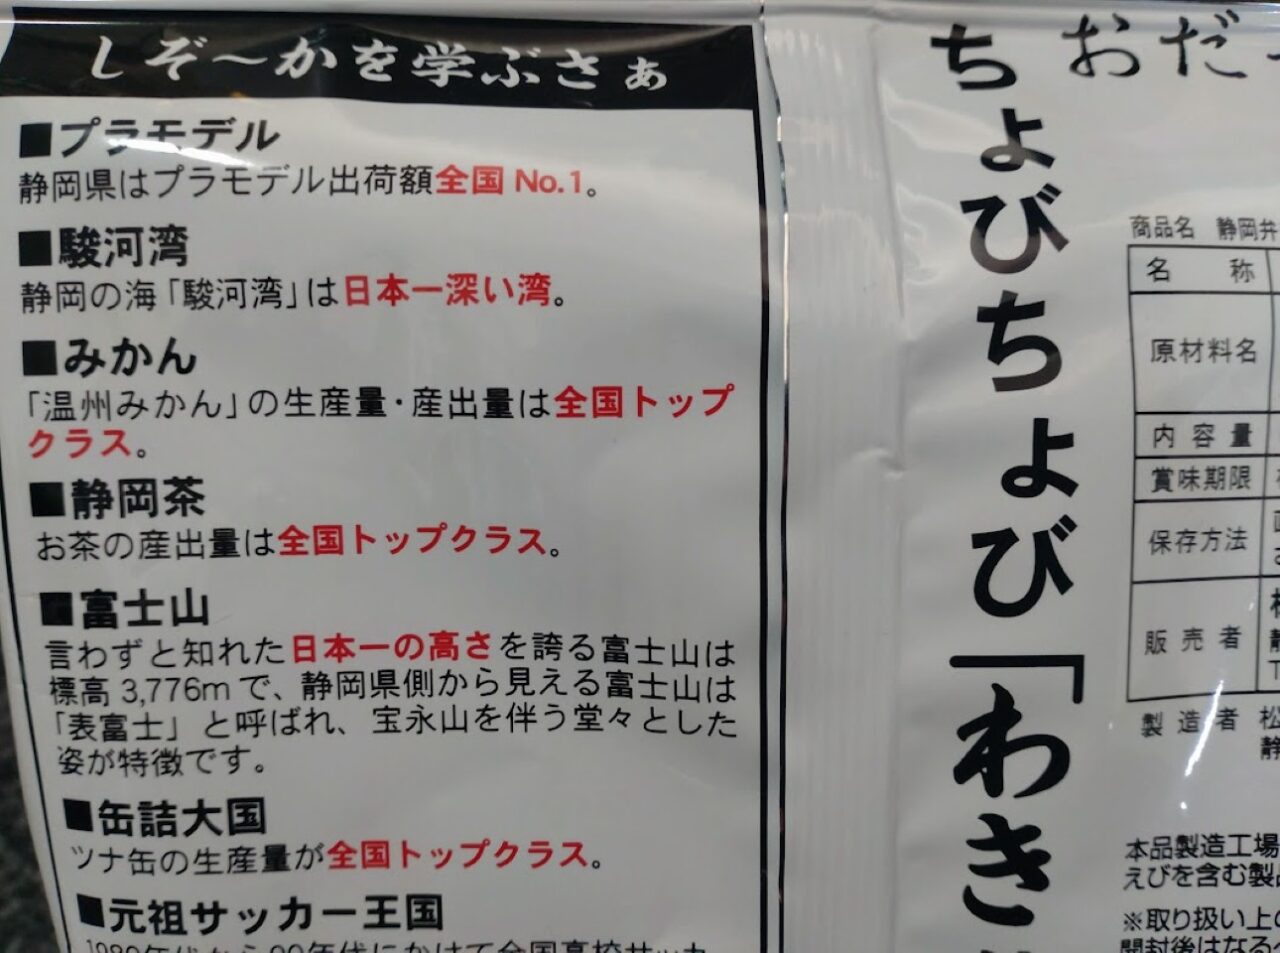 しぞ～かを学ぶさぁ
■プラモデル
静岡県はプラモデル出荷額全国No.1。
■駿河湾
静岡の海「駿河湾」は日本一深い湾。
■みかん
「温州みかん」の生産量・産出量は全国トップ
クラス。
■静岡茶
お茶の産出量は全国トップクラス。
■富士山
言わずと知れた日本一の高さを誇る富士山は
標高3,776mで、静岡県側から見える富士山は
「表富士」と呼ばれ、宝永山を伴う堂々とした
姿が特徴です。
■缶詰大国
ツナ缶の生産量が全国トップクラス。
■元祖サッカー王国
おだ
ちょびちょび「わき
商品名 静岡弁
名称
原材料名
内容量
賞味期限
保存方法
販売者
製造者 松
静
本品製造工場
えびを含む製品
※取り扱い上の
開封後はなるべ